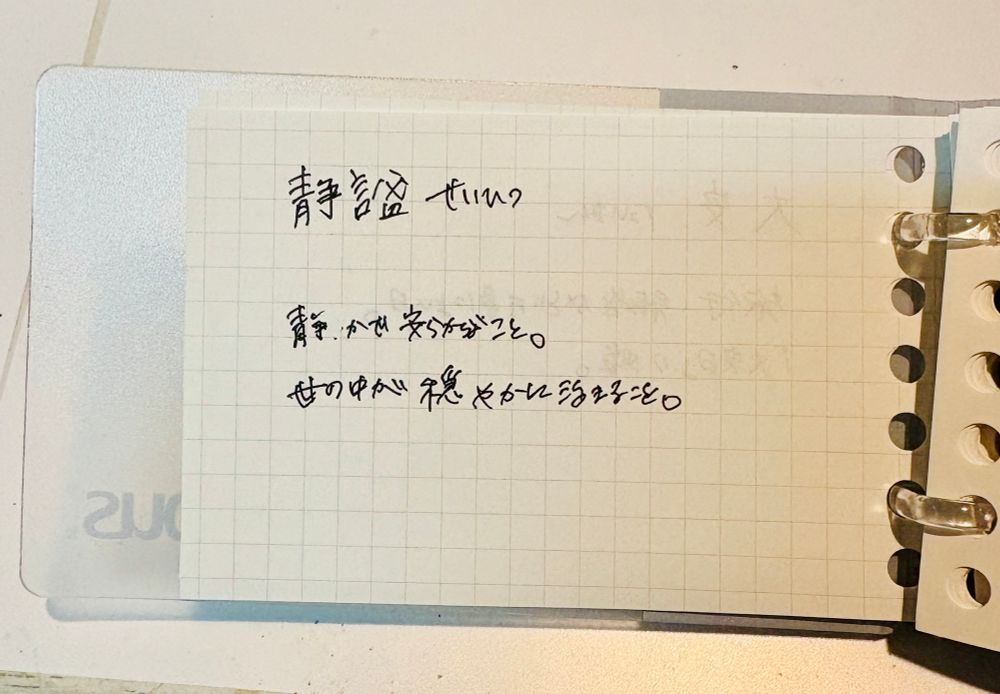 静謐 せいひつ
静かで安らかなこと。
世の中が穏やかに治まること。